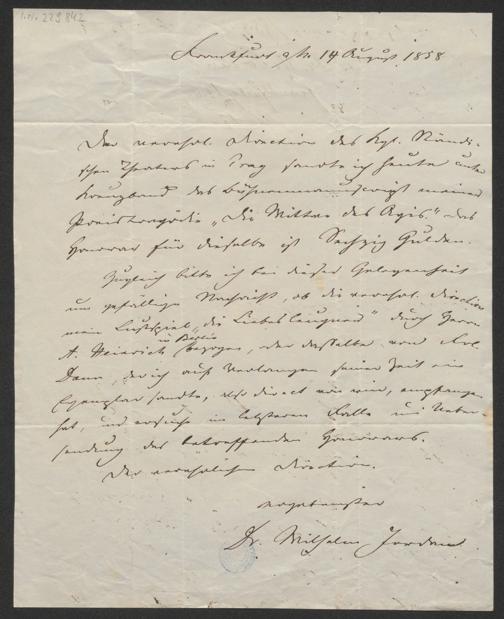 I.N. 229.842
Frankfurt a/M. 14 August 1858
Der verehrl. Direction des Kgl. Ständi-
schen Theaters in Prag sandte ich heute unter
Kreuzband das Bühnenmanuscript meiner
Preistragödie „Die Wittwe des Agis." Das
Honorar für dieselbe ist Sechzig Gulden.
Zugleich bitte ich bei dieser Gelegenheit
um gefällige Nachricht, ob die verehrl. Direction
mein Lustspiel „die Liebesleugner" durch Herrn
A. Heinrich in Berlin bezogen, oder dasselbe von
ich auf Verlangen seiner Zeit ein
Exemplar sandte, also direct von mir, empfangen
hat, und ersuche im letzteren Falle um Ueber-
sendung des betreffenden Honorars.
Der verehrlichen Direction.
ergebenster
Dr. Wilhelm Jordan